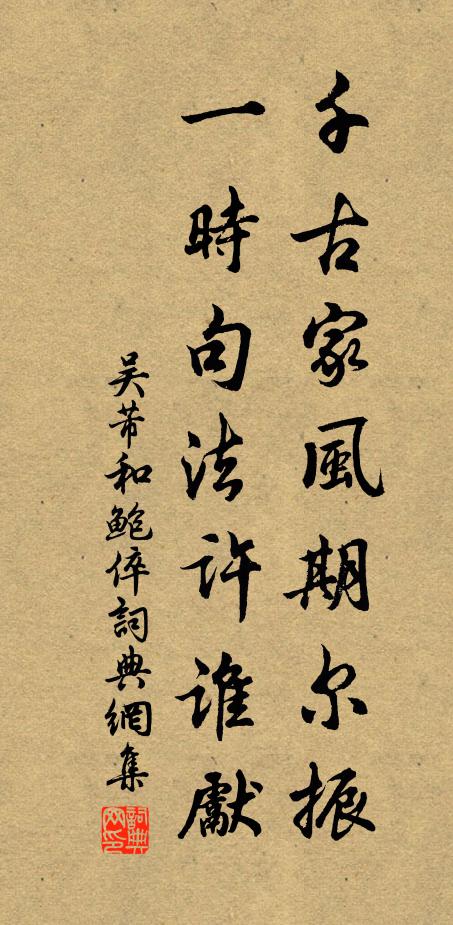 千古家風期尔振
一時句法許誰獻
吴芾和鮑倅詞典網集
詞典网印